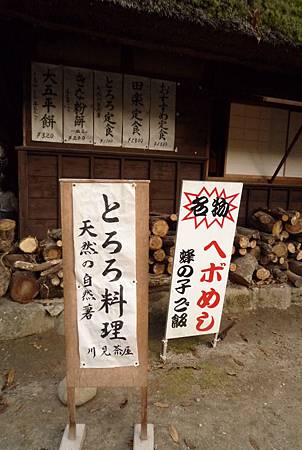 おすすめ定食
田楽定食
とろろ定食
きなこ粉餅
大五平餅
¥320
とろろ料理
天然の自然薯
川見茶屋
名物
ヘボめし
蜂の子ご飯